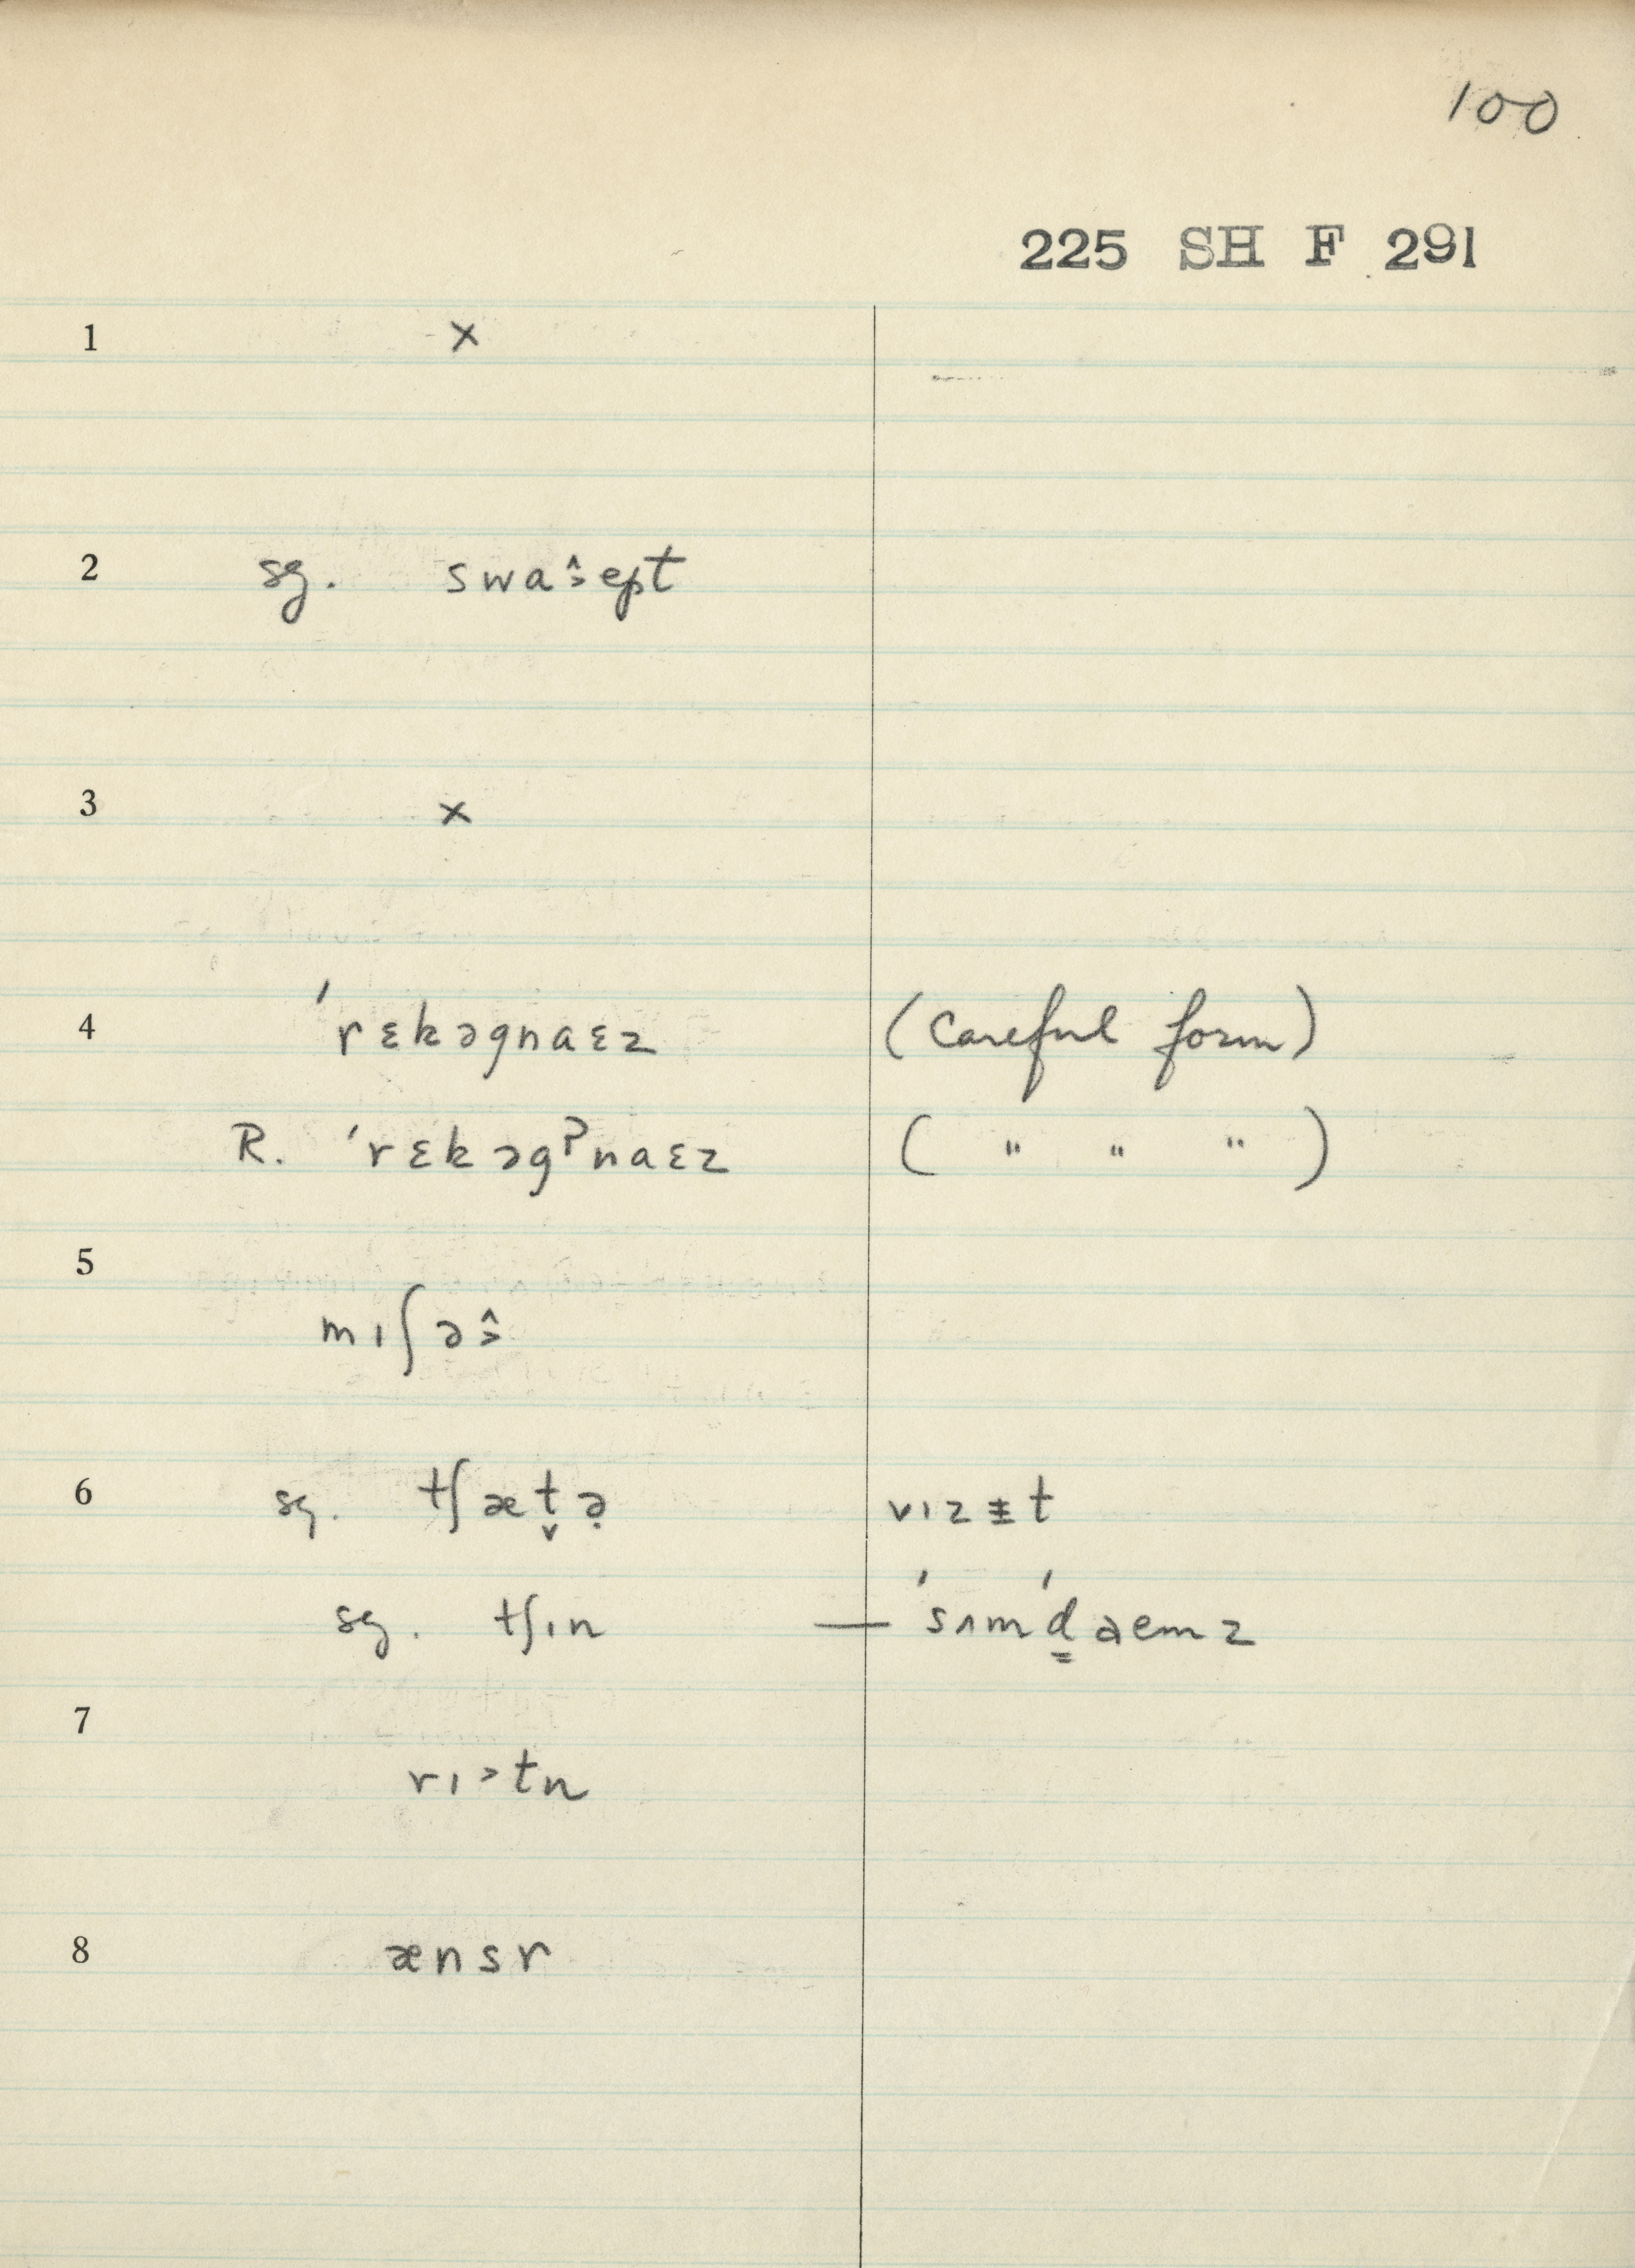 100
225 SH F 291
1 ×
2 sg. swaɪ̯̂˃ept
3 ×
4 ˈrɛkəgnaɛz (Careful form)
R. ˈrɛkəgˀnaɛz ( " " " )
5
mɪʃə˄˃
6 sg. tʃæt̬ə̣ vɪzɨt
sg. tʃɪn — ˈsʌmˈd̳aemz
7
rɪ˃tn
8 ænsr